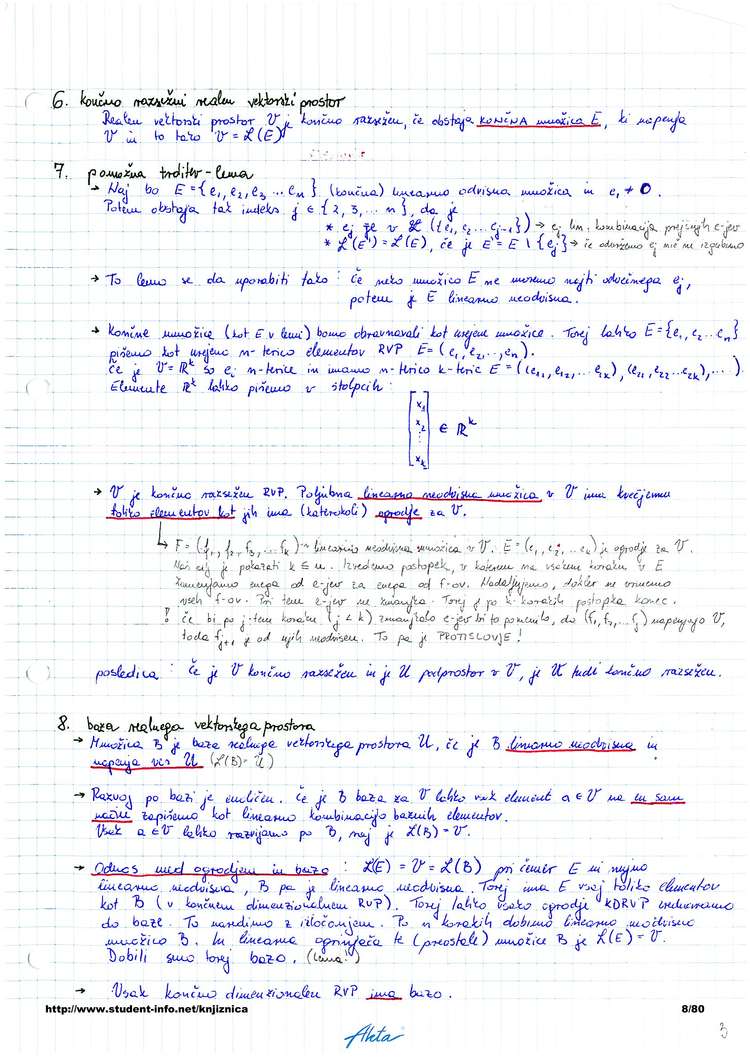 6. končno razsežni realen vektorski prostor
Realen vektorski prostor V je končno razsežen, če obstaja KONČNA množica E, ki napenja
V in to tako V = L(E)
7. pomožna trditev - lema
→ Naj bo E = {e₁, e₂, e₃ ... eₙ} (končna) linearno odvisna množica in e₁ ≠ 0.
Potem obstaja tak indeks j ∈ {2, 3, ... n}, da je
* ej že v L({e₁, e₂ ... ej-1}) → ej lin. kombinacija prejšnjih e-jev
* L(E') = L(E), če je E' = E \ {ej} → če odvržemo ej nič ne izgubimo
→ To lemo se da uporabiti tako : če neko množico E ne moremo najti odvečnega ej,
potem je E linearno neodvisna.
→ Končne množice (kot E v lemi) bomo obravnavali kot urejene množice. Torej lahko E = {e₁, e₂ ... eₙ}
pišemo kot urejeno n-terico elementov RVP E = (e₁, e₂, ..., eₙ).
Če je V = ℝᵏ so ei n-terice in imamo n-terico k-teric E = ((e₁₁, e₁₂, ... e₁k), (e₂₁, e₂₂ ... e₂k), ... ).
Elemente ℝᵏ lahko pišemo v stolpcih :
[x₁
x₂
⋮
xk] ∈ ℝᵏ
→ V je končno razsežen RVP. Poljubna linearno neodvisna množica v V ima kvečjemu
toliko elementov kot jih ima (katerokoli) ogrodje za V.
↳ F = (f₁, f₂, f₃, ... fk) → linearno neodvisna množica v V. E = (e₁, e₂, ... eₙ) je ogrodje za V.
Naš cilj je pokazati k ≤ n. Izvedemo postopek, v katerem na vsakem koraku v E
zamenjamo enega od e-jev za enega od f-ov. Nadaljujemo, dokler ne vrinemo
vseh f-ov. Pri tem e-jev ne zmanjka. Torej je po k korakih postopka konec.
! če bi po j-tem koraku (j < k) zmanjkalo e-jev bi to pomenilo, da (f₁, f₂, ... fj) napenjajo V,
toda fj+1 je od njih neodvisen. To pa je PROTISLOVJE!
posledica : če je V končno razsežen in je U podprostor v V, je U tudi končno razsežen.
8. baza realnega vektorskega prostora
→ Množica B je baza realnega vektorskega prostora U, če je B linearno neodvisna in
napenja ves U (L(B) = U)
→ Razvoj po bazi je enoličen. če je B baza za V lahko vsak element a ∈ V na en sam
način zapišemo kot linearno kombinacijo baznih elementov.
Vsak a ∈ V lahko razvijamo po B, saj je L(B) = V.
→ Odnos med ogrodjem in bazo : L(E) = V = L(B) pri čemer E ni nujno
linearno neodvisna, B pa je linearno neodvisna. Torej ima E vsaj toliko elementov
kot B (v končnem dimenzionalnem RVP). Torej lahko vsako ogrodje KDRVP reduciramo
do baze. To naredimo z izločanjem. Po n korakih dobimo linearno neodvisno
množico B. In linearna ogrinjača te (preostale) množice B je L(E) = V.
Dobili smo torej bazo. (lema!)
→ Vsak končno dimenzionalen RVP ima bazo.
http://www.student-info.net/knjiznica 8/80
Aleta
3